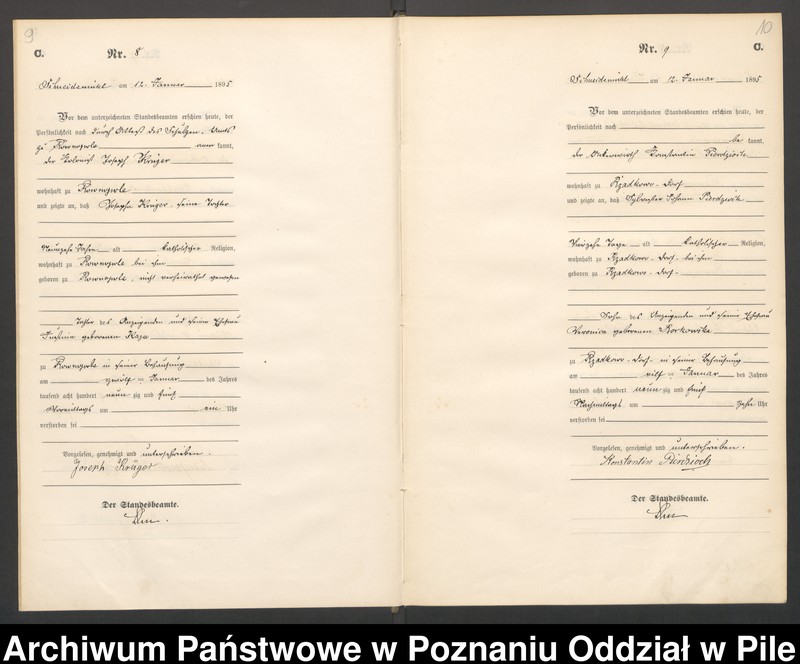 9
C.
Nr. 8
Schneidemühl am 12. Januar 1895
Vor dem unterzeichneten Standesbeamten erschien heute, der
Persönlichkeit nach durch Attest des Schulzen-Amts
zu kannt,
der Kolonist Joseph Krüger
wohnhaft zu
und zeigte an, daß Josepha Krüger, seine Tochter
Neunzehn Jahre alt katholischer Religion,
wohnhaft zu bei ihm
geboren zu , nicht verheirathet gewesen
Tochter des Anzeigenden und seiner Ehefrau
geborenen
zu in seiner Behausung
am zwölf ten Januar des Jahres
tausend acht hundert neun zig und fünf
Vormittags um ein Uhr
verstorben sei
Vorgelesen, genehmigt und unterschrieben.
Joseph Krüger
Der Standesbeamte.
10
Nr. 9
C.
Schneidemühl am 12. Januar 1895
Vor dem unterzeichneten Standesbeamten erschien heute, der
Persönlichkeit nach
be kannt,
der Ackerwirth Konstantin
wohnhaft zu Rzadkowo-Dorf
und zeigte an, daß Sylvester Johann
Vierzehn Tage alt katholischer Religion,
wohnhaft zu Rzadkowo-Dorf bei ihm
geboren zu Rzadkowo-Dorf
Sohn des Anzeigenden und seiner Ehefrau
Veronica geborenen
zu Rzadkowo-Dorf in seiner Behausung
am elf ten Januar des Jahres
tausend acht hundert neun zig und fünf
Nachmittags um zehn Uhr
verstorben sei
Vorgelesen, genehmigt und unterschrieben.
Konstantin
Der Standesbeamte.
Archiwum Państwowe w Poznaniu Oddział w Pile